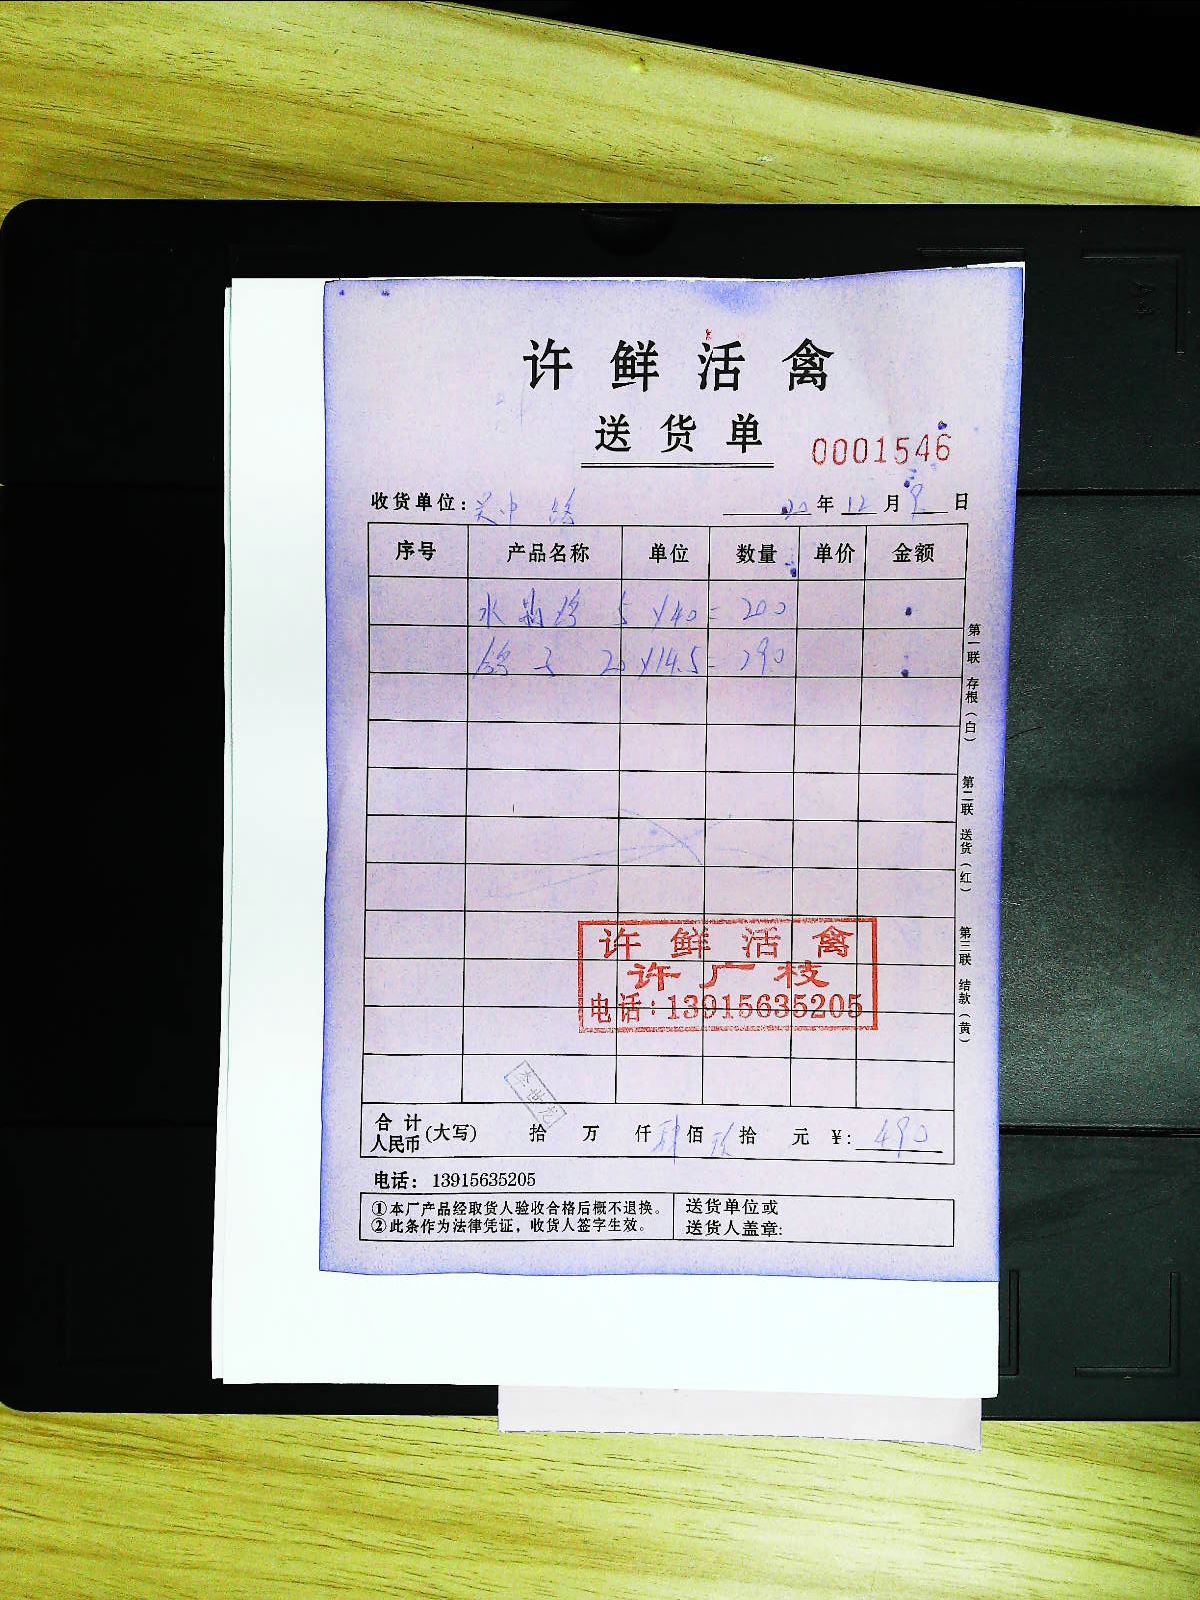 许鲜活禽
送货单
0001546
收货单位: 吴中 20年12月9日
序号 产品名称 单位 数量 单价 金额
水 鸡 5×40=200
鸽子 20×14.5=290
第一联 存根(白)
第二联 送货(红)
第三联 结款(黄)
许鲜活禽
许广枝
电话:13915635205
李世龙
合计人民币(大写) 拾 万 仟 肆佰 玖拾 元 ¥: 490
电话: 13915635205
①本厂产品经取货人验收合格后概不退换。
②此条作为法律凭证,收货人签字生效。
送货单位或
送货人盖章: